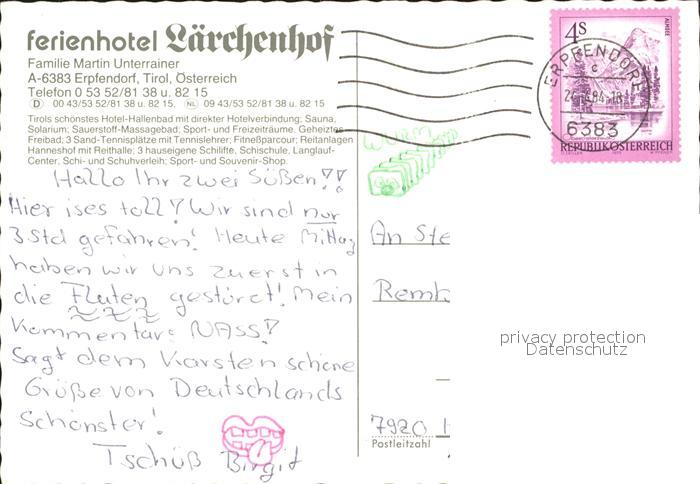 ferienhotel Lärchenhof
Familie Martin Unterrainer
A-6383 Erpfendorf, Tirol, Österreich
Telefon 0 53 52/81 38 u. 82 15
D 00 43/53 52/81 38 u. 82 15, NL 09 43/53 52/81 38 u. 82 15
Tirols schönstes Hotel-Hallenbad mit direkter Hotelverbindung; Sauna,
Solarium; Sauerstoff-Massagebad; Sport- und Freizeiträume. Geheiztes
Freibad; 3 Sand-Tennisplätze mit Tennislehrer; Fitneßparcour; Reitanlagen
Hanneshof mit Reithalle; 3 hauseigene Schilifte, Schischule, Langlauf-
Center, Schi- und Schuhverleih; Sport- und Souvenir-Shop.
Hallo Ihr zwei Süßen!!
Hier ises toll! Wir sind nur
3 Std gefahren! Heute Mittag
haben wir uns zuerst in
die Fluten gestürzt! Mein
Kommentar: NASS!
Sagt dem Karsten schöne
Grüße von Deutschlands
Schönster!
Tschüß Birgit
An Ste
7920
Postleitzahl
4S
ALMSEE
REPUBLIK ÖSTERREICH
ERPFENDORF
c
6383
privacy protection
Datenschutz